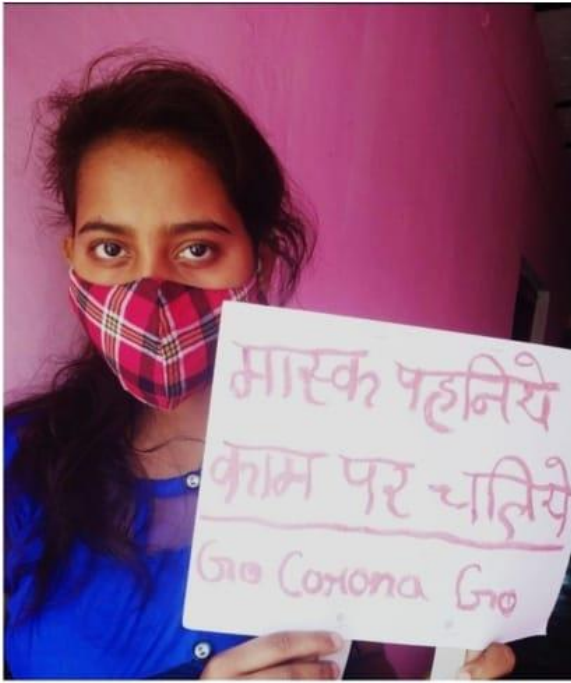 मास्क पहनिये
काम पर चलिये
Go Corona Go